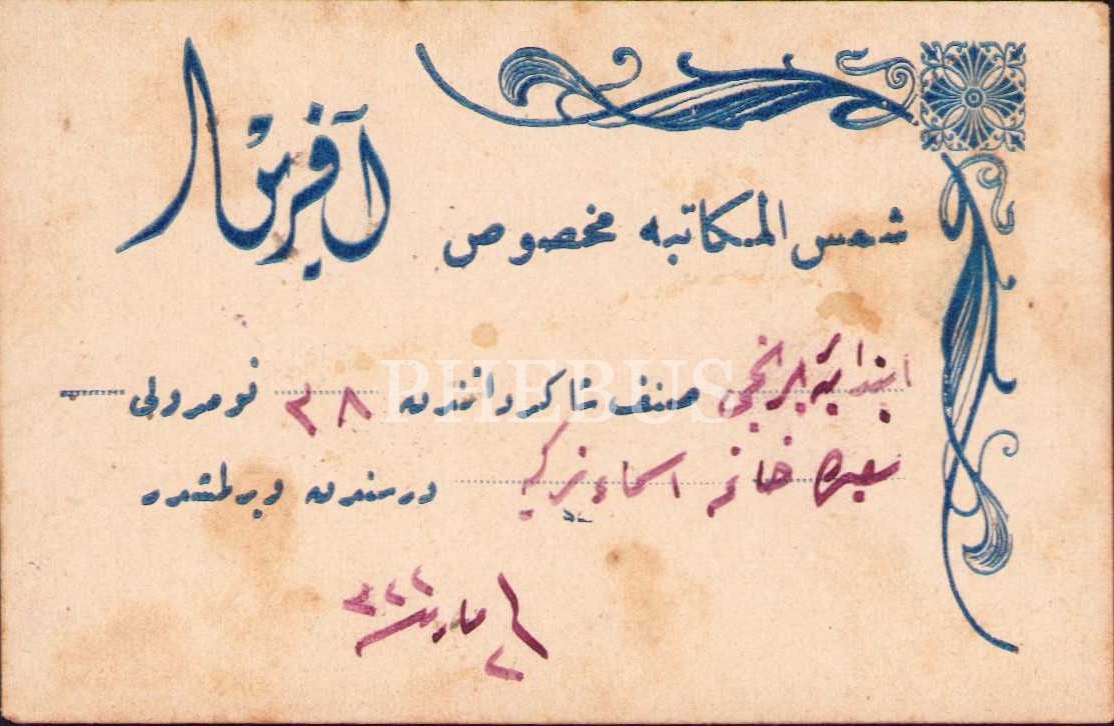 آفرین
شمس المكاتبه مخصوص
ابتدائیه برنجی صنف شاكردانندن ٣٨ نومرولی
خانم اسماء تركیه درسندن ویرلمشدر
مارت ٣٢٢
PHEBUS